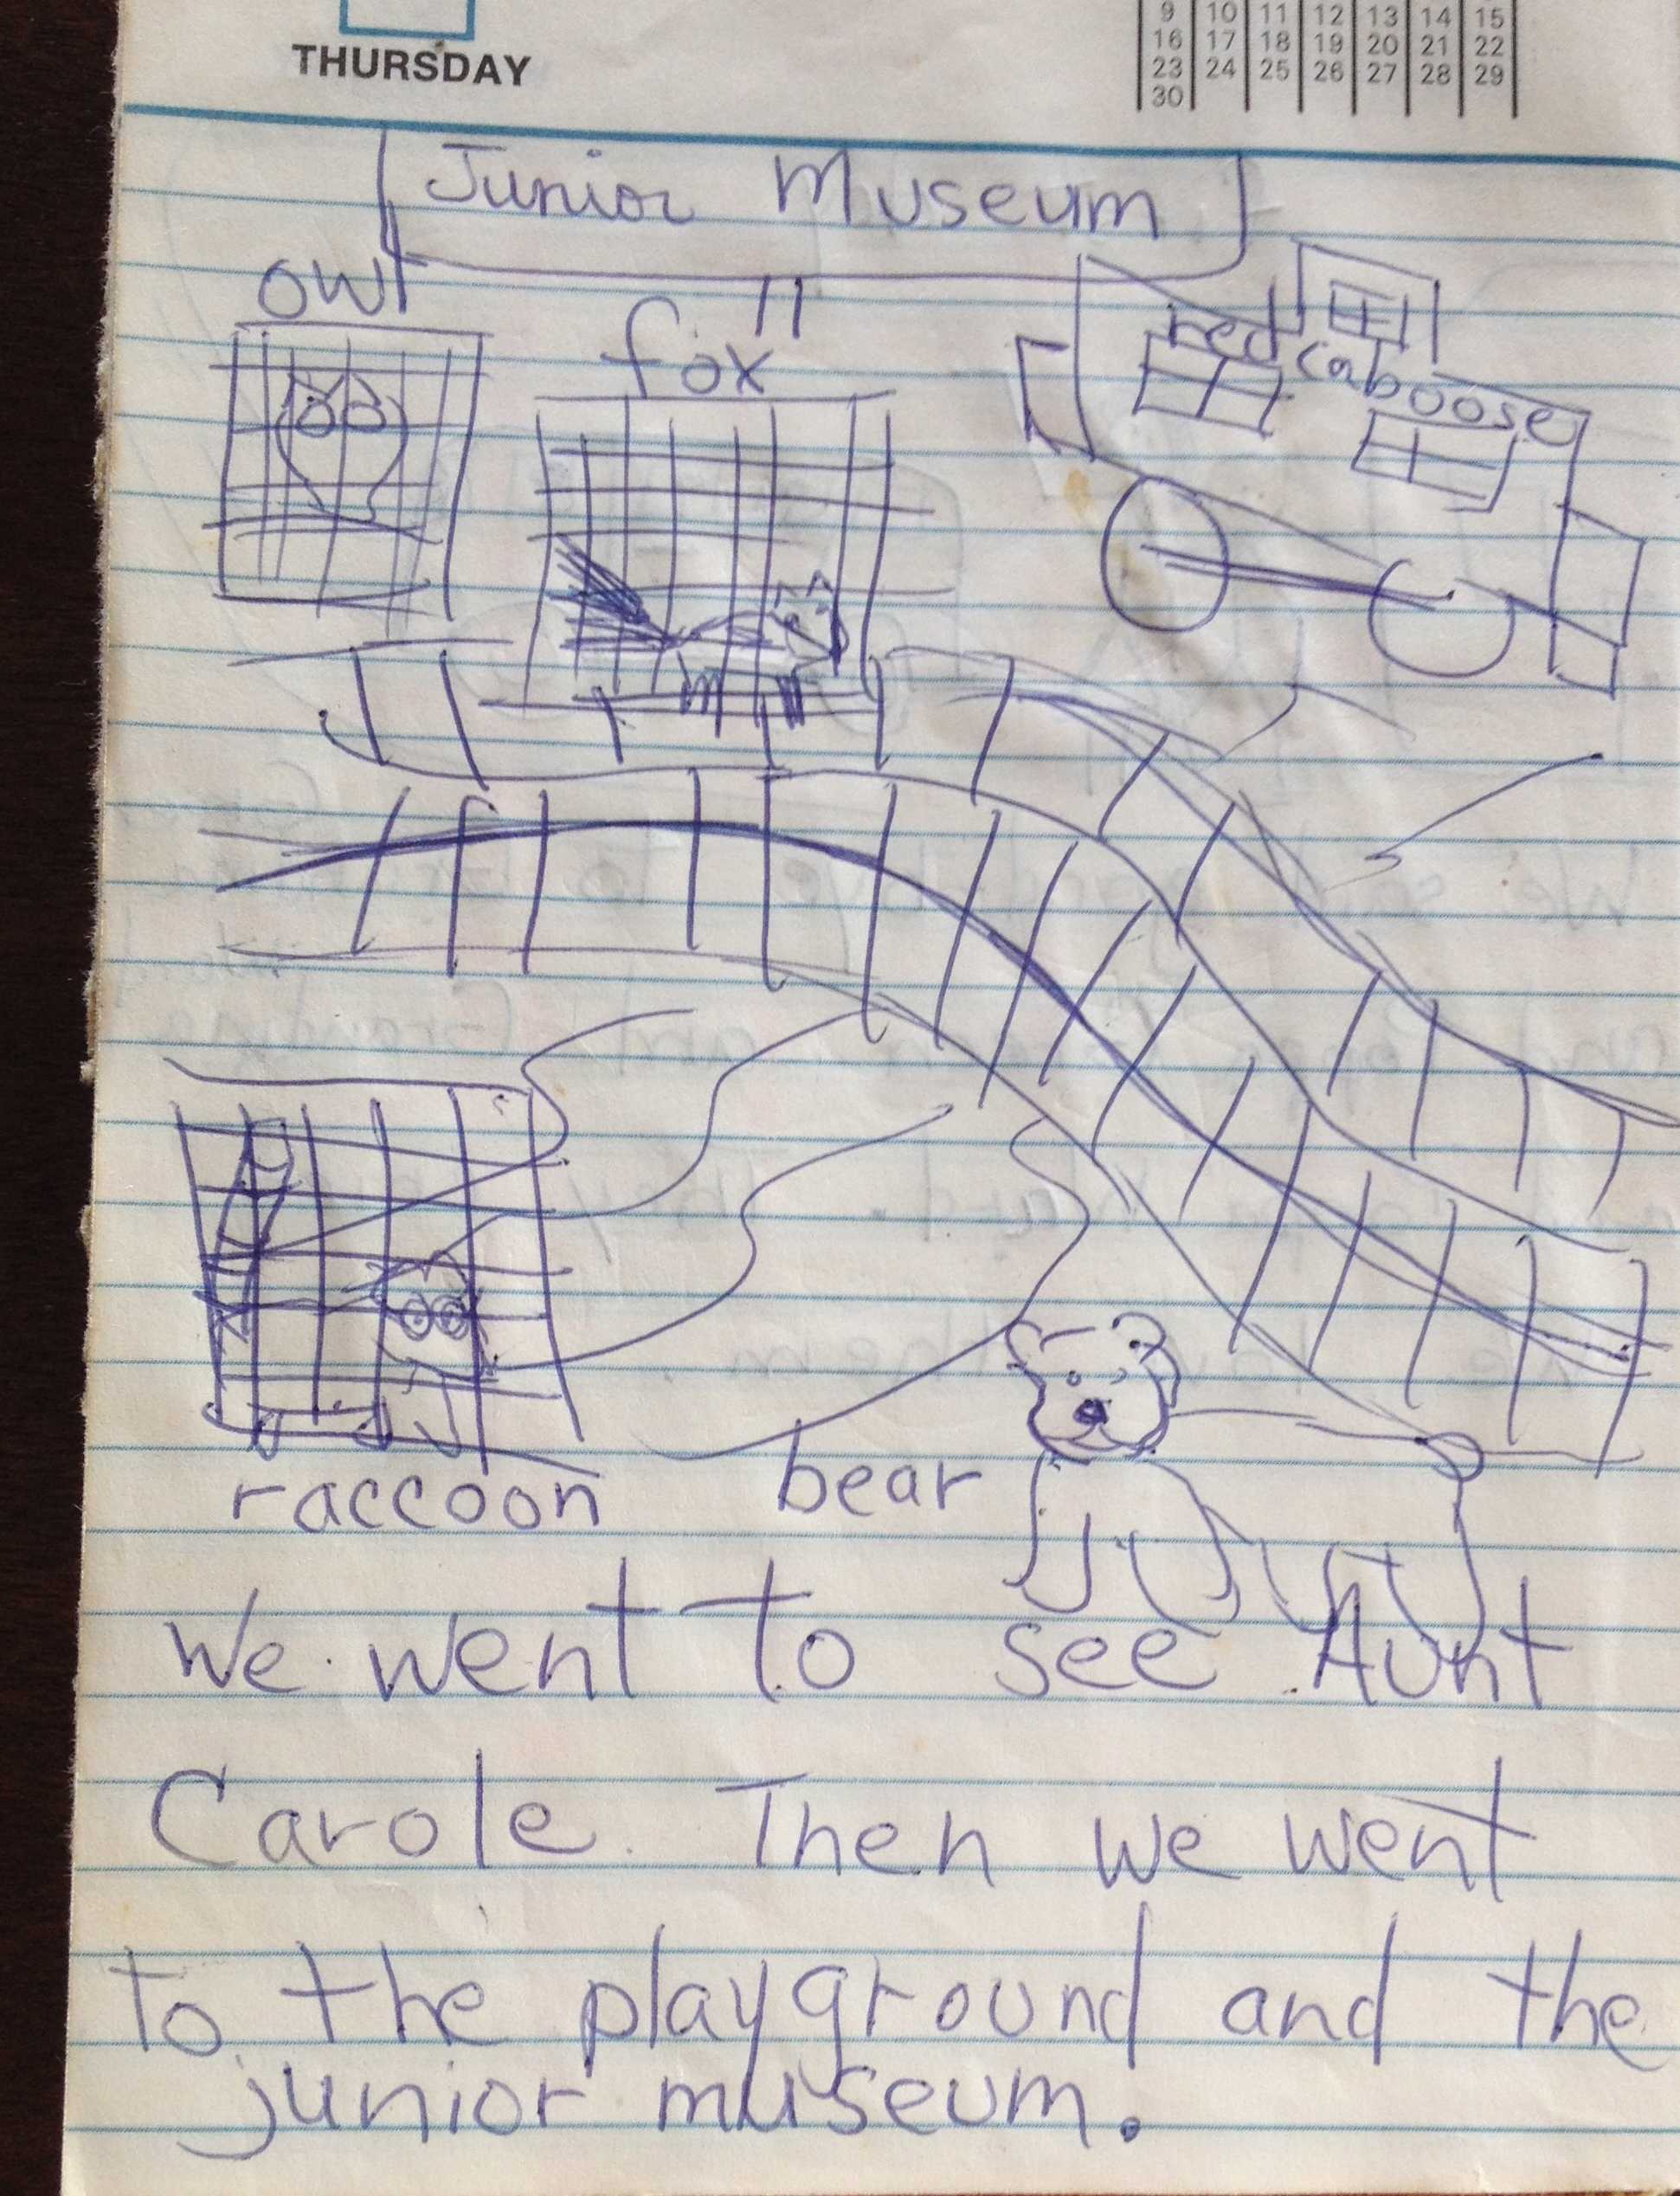 THURSDAY
9 10 11 12 13 14 15
16 17 18 19 20 21 22
23 24 25 26 27 28 29
30
Junior Museum
owl
fox
red
caboose
raccoon bear
We went to see Aunt
Carole. Then we went
to the playground and the
junior museum.